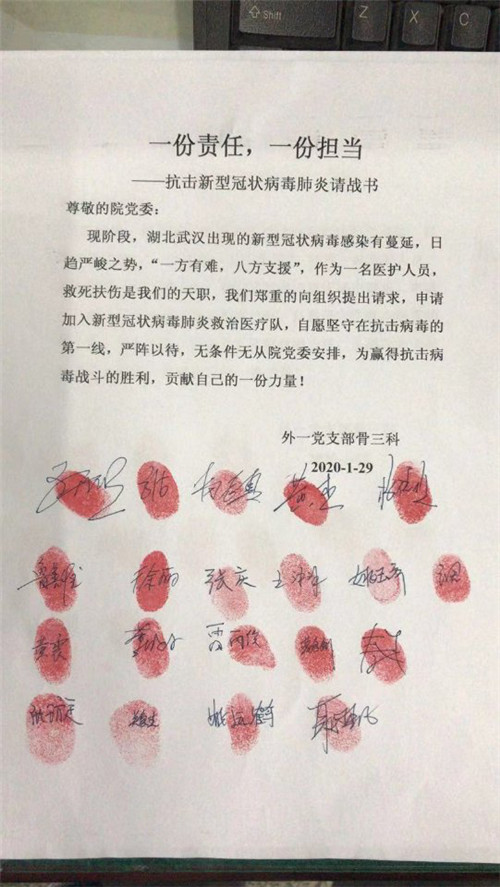 Shift
Z
X
C
一份责任，一份担当
——抗击新型冠状病毒肺炎请战书
尊敬的院党委：
现阶段，湖北武汉出现的新型冠状病毒感染有蔓延，日
趋严峻之势，“一方有难，八方支援”，作为一名医护人员，
救死扶伤是我们的天职，我们郑重的向组织提出请求，申请
加入新型冠状病毒肺炎救治医疗队，自愿坚守在抗击病毒的
第一线，严阵以待，无条件无从院党委安排，为赢得抗击病
毒战斗的胜利，贡献自己的一份力量！
外一党支部骨三科
2020-1-29
徐丽 张庆